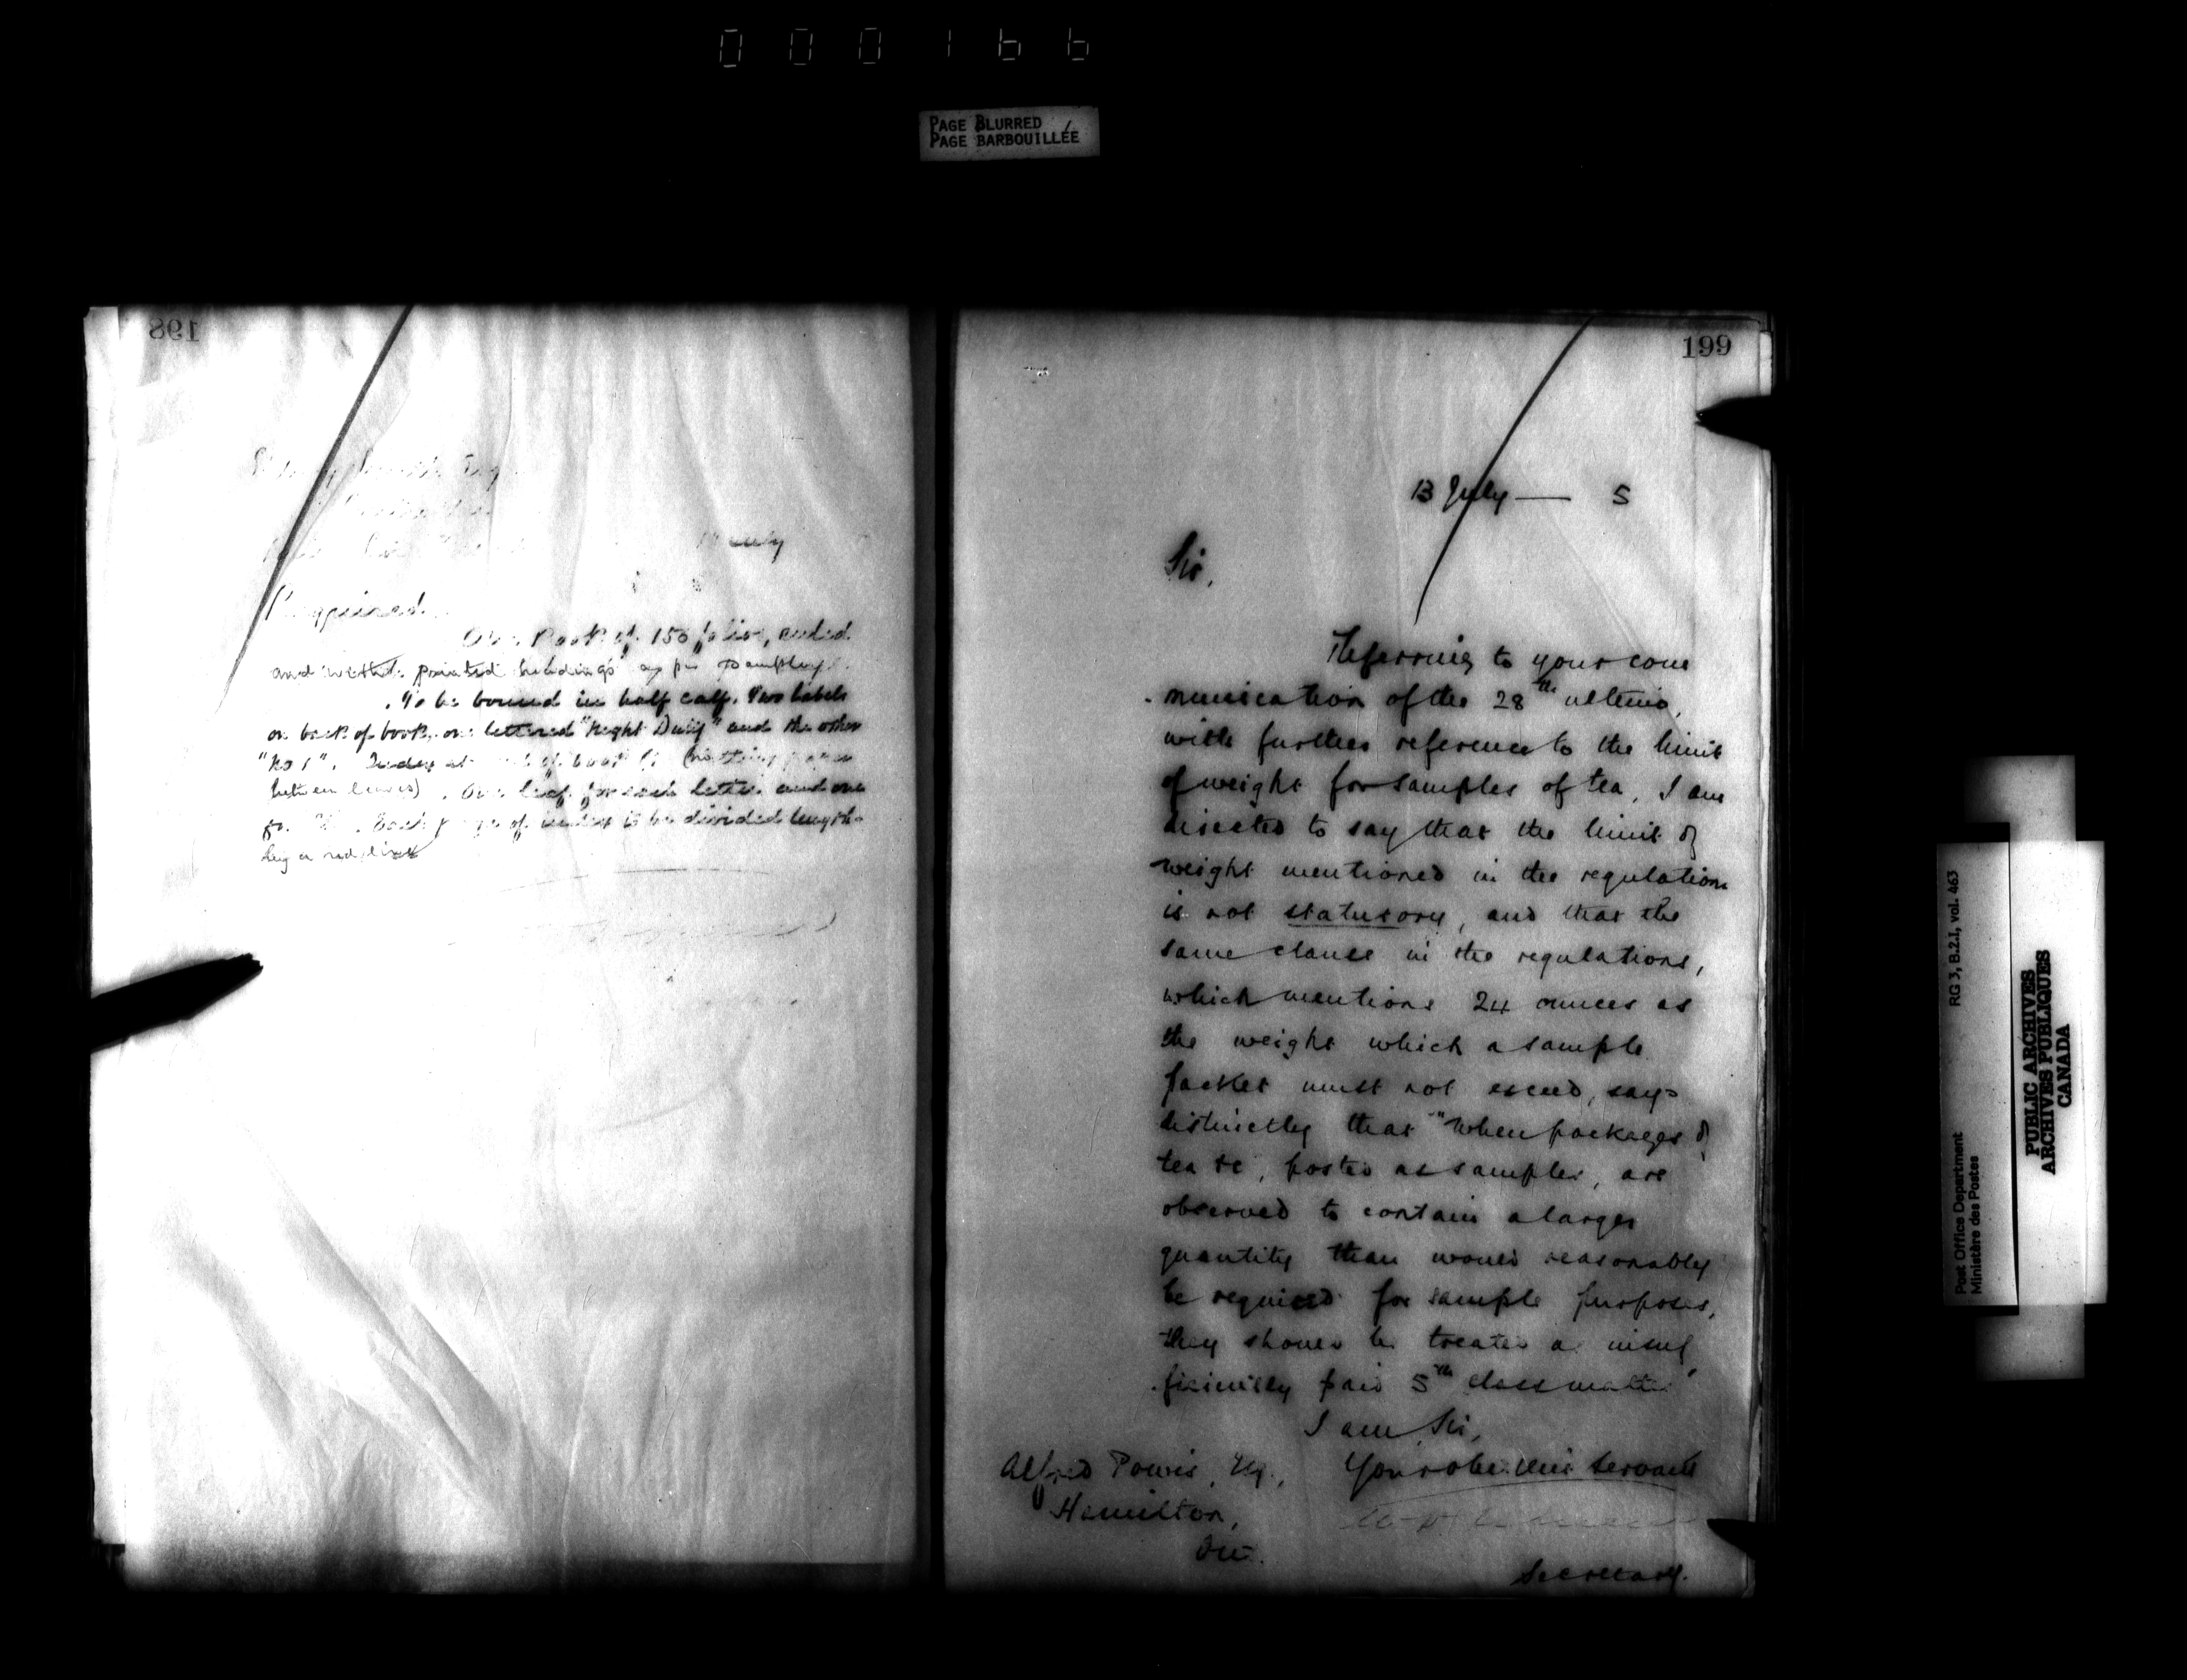 000166
PAGE BLURRED
PAGE BARBOUILLÉE
198
July
Required
One Book of 150 folios, ruled
and with printed headings as per sample
To be bound in half calf. Two labels
on back of book, one lettered "Night Duty" and the other
"No 1". Index at of book
between leaves). One leaf for each letter and one
for . Each page of index to be divided length-
by a red line
199
13 July — 5
Sir,
Referring to your com
munication of the 28th ultimo,
with further reference to the limit
of weight for samples of tea, I am
directed to say that the limit of
weight mentioned in the regulations
is not statutory, and that the
same clause in the regulations,
which mentions 24 ounces as
the weight which a sample
packet must not exceed, says
distinctly that "When packages of
tea &c, posted as samples, are
observed to contain a larger
quantity than would reasonably
be required for sample purposes,
they should be treated as insuf
ficiently paid 5th class matter"
I am, Sir,
Your obedient Servant
Alfred Powis, Esq.,
Hamilton,
Ont.
Secretary.
RG 3, B.2.I, vol. 463
Post Office Department
Ministère des Postes
PUBLIC ARCHIVES
ARCHIVES PUBLIQUES
CANADA